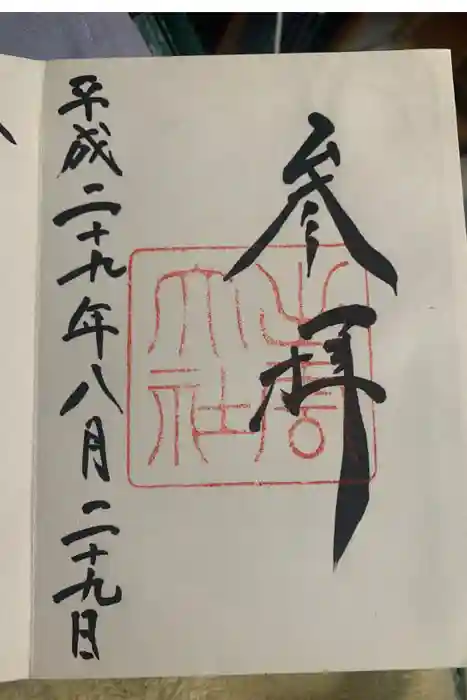 参拝
大社
平成二十九年八月二十九日